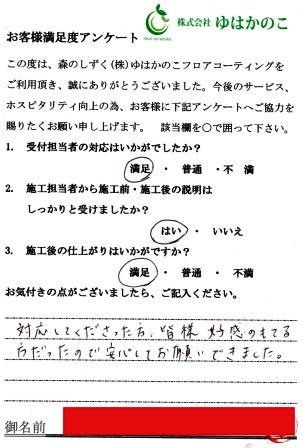 株式会社 ゆはかのこ
Mori no shizuku
お客様満足度アンケート
この度は、森のしずく(株)ゆはかのこフロアコーティングを
ご利用頂き、誠にありがとうございました。今後のサービス、
ホスピタリティ向上の為、お客様に下記アンケートへご協力を
賜りたくお願い申し上げます。 該当欄を〇で囲って下さい。
1. 受付担当者の対応はいかがでしたか?
満足 ・ 普通 ・不 満
2. 施工担当者から施工前・施工後の説明は
しっかりと受けましたか?
はい ・ いいえ
3. 施工後の仕上がりはいかがですか?
満足 ・ 普通 ・ 不満
お気付きの点がございましたら、ご記入ください。
対応してくださった方、皆様 好感のもてる
方だったので安心してお願いできました。
御名前